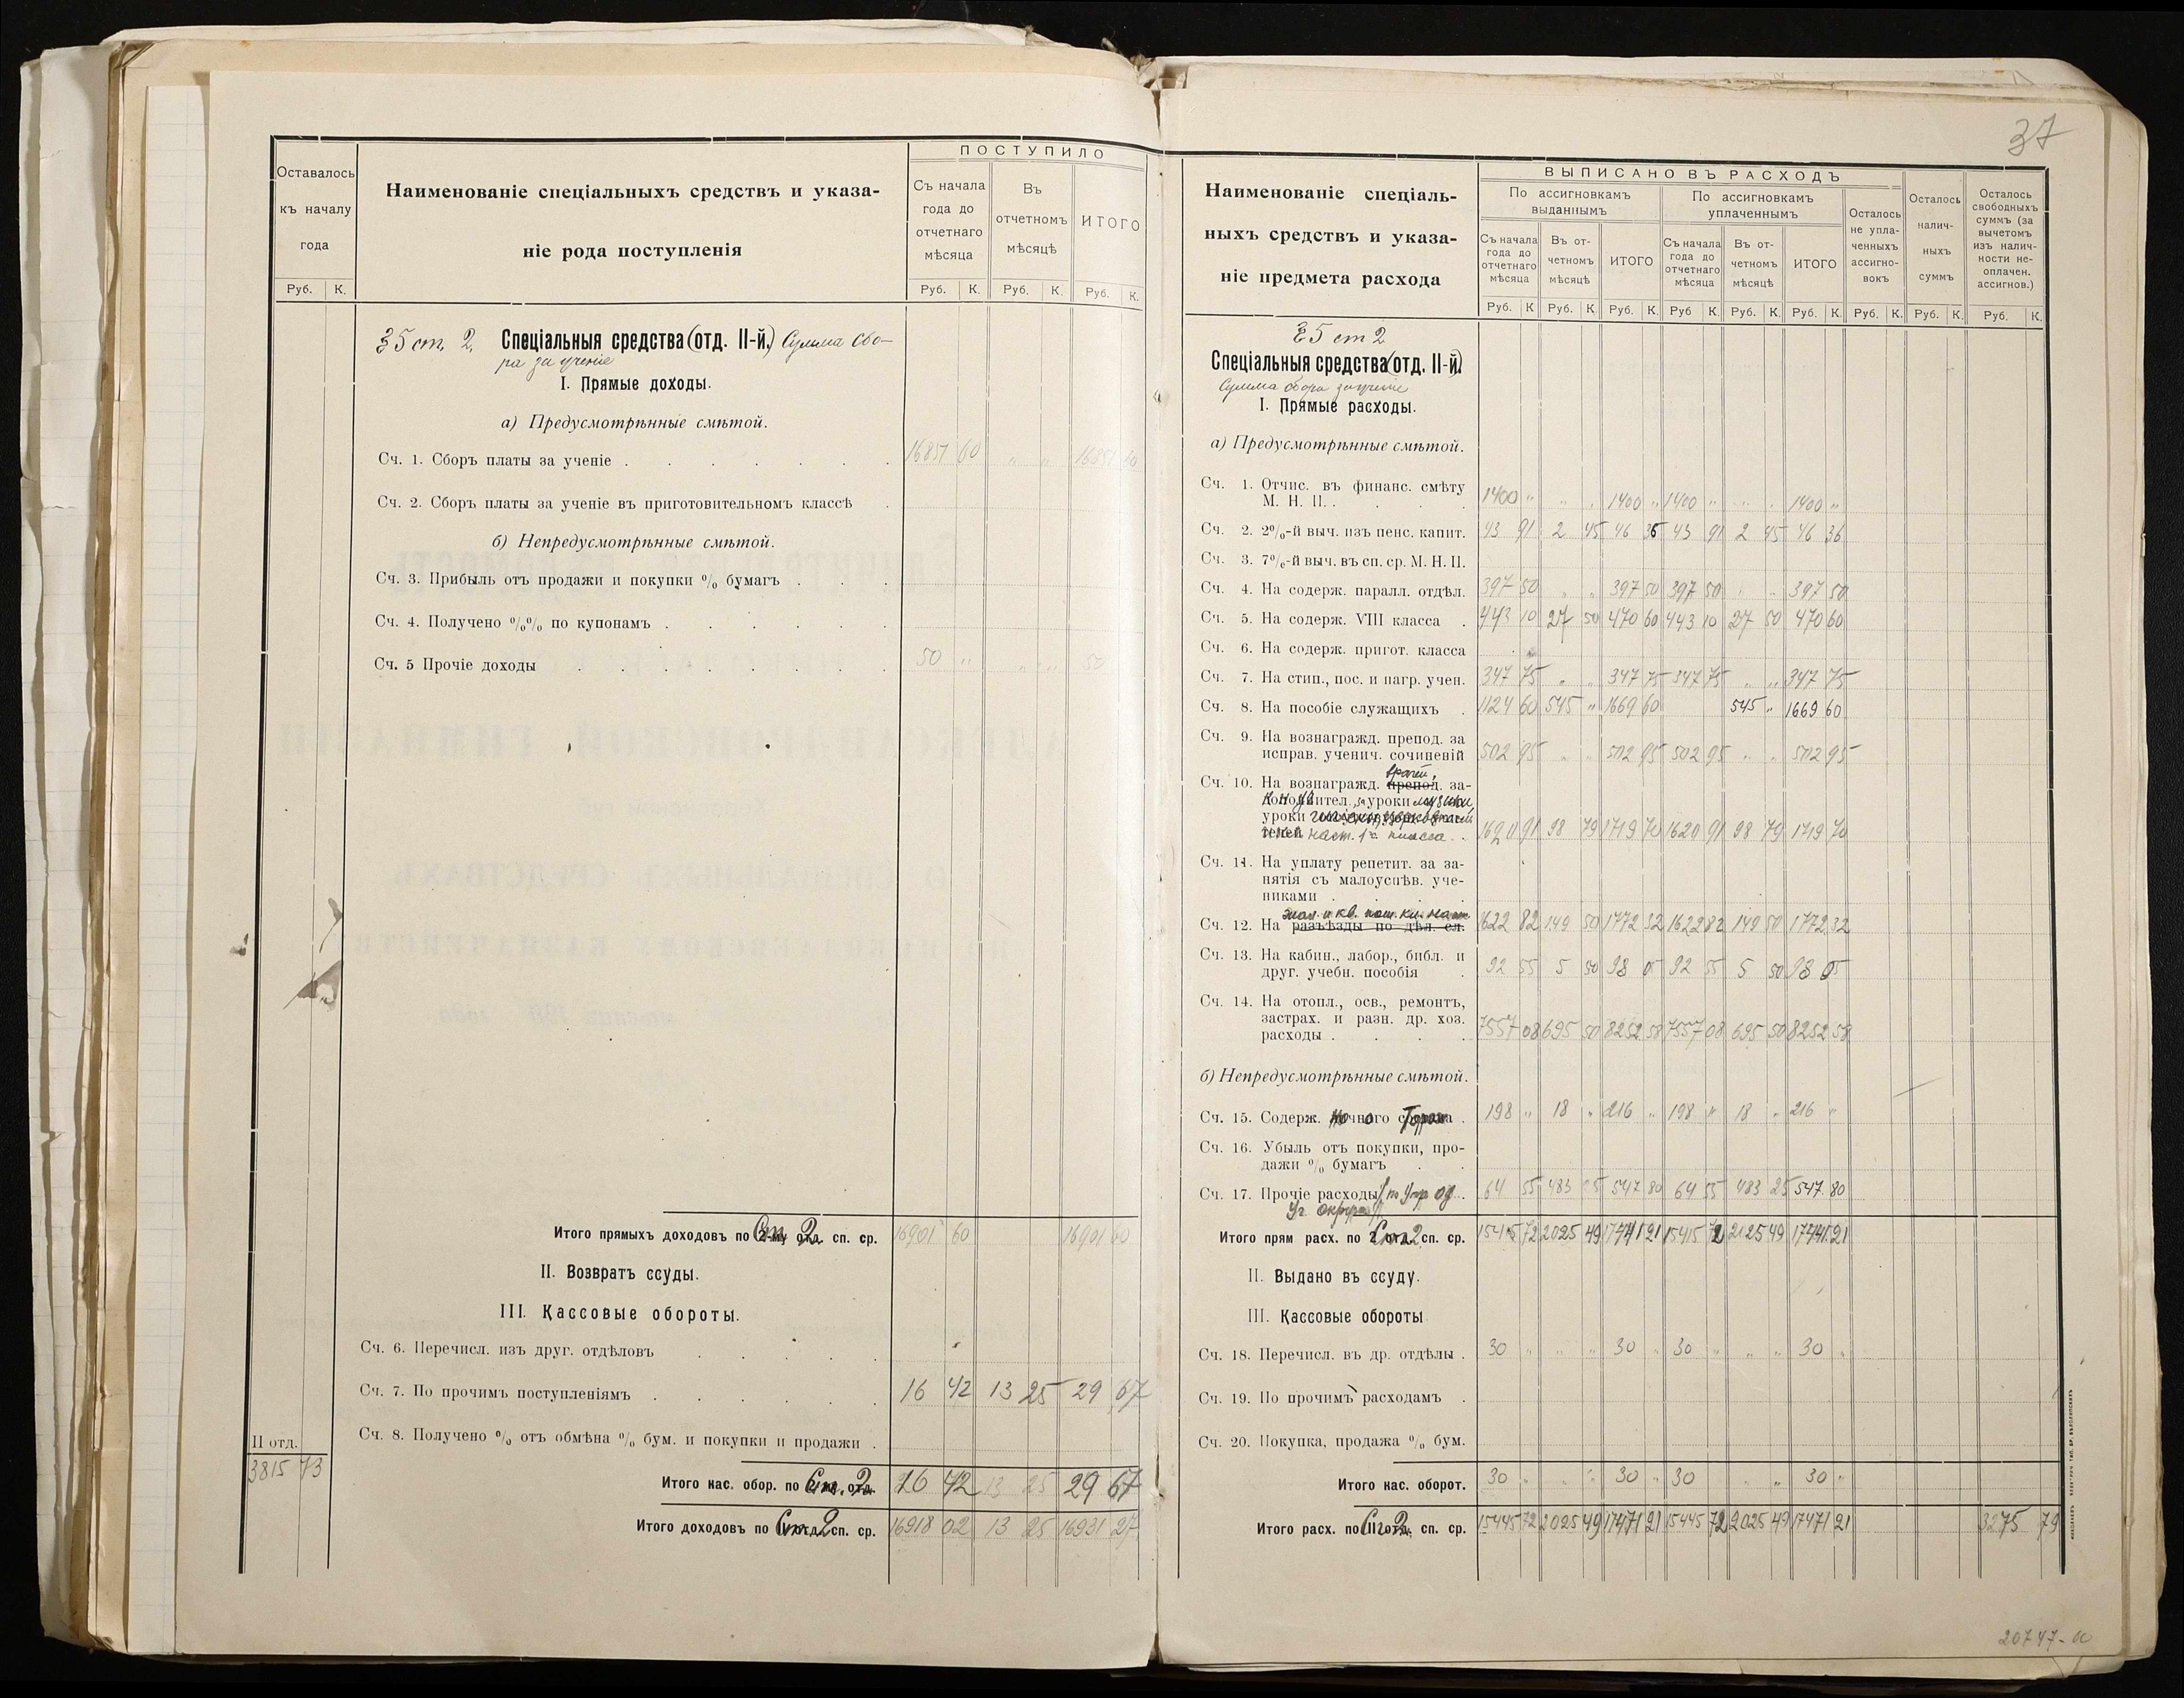 37
Оставалось
къ началу
года
Руб. К.
Наименованіе спеціальныхъ средствъ и указа-
ніе рода поступленія
ПОСТУПИЛО
Съ начала
года до
отчетнаго
мѣсяца
Въ
отчетномъ
мѣсяцѣ
ИТОГО
Руб. К. Руб. К. Руб. К.
§ 5 ст. 2. Спеціальныя средства (отд. II-й.) Сумма сбо-
ра за ученіе
I. Прямые доходы.
а) Предусмотрѣнные смѣтой.
Сч. 1. Сборъ платы за ученіе . 16851 60 „ „ 16851 60
Сч. 2. Сборъ платы за ученіе въ приготовительномъ классѣ .
б) Непредусмотрѣнные смѣтой.
Сч. 3. Прибыль отъ продажи и покупки % бумагъ . . .
Сч. 4. Получено %% по купонамъ . . . .
Сч. 5 Прочіе доходы . . . . 50 „ „ „ 50
Итого прямыхъ доходовъ по Ст. 2 сп. ср. 16901 60 16901 60
II. Возвратъ ссуды.
III. Кассовые обороты.
Сч. 6. Перечисл. изъ друг. отдѣловъ . . . .
Сч. 7. По прочимъ поступленіямъ . . . . 16 42 13 25 29 67
Сч. 8. Получено % отъ обмѣна % бум. и покупки и продажи .
II отд.
3815 73
Итого кас. обор. по Ст. 2 отд. 16 42 13 25 29 67
Итого доходовъ по Ст. 2 отд. сп. ср. 16918 02 13 25 16931 27
Наименованіе спеціаль-
ныхъ средствъ и указа-
ніе предмета расхода
ВЫПИСАНО ВЪ РАСХОДЪ
По ассигновкамъ
выданнымъ
По ассигновкамъ
уплаченнымъ
Съ начала
года до
отчетнаго
мѣсяца
Въ от-
четномъ
мѣсяцѣ
ИТОГО
Съ начала
года до
отчетнаго
мѣсяца
Въ от-
четномъ
мѣсяцѣ
ИТОГО
Осталось
не упла-
ченныхъ
ассигно-
вокъ
Осталось
налич-
ныхъ
суммъ
Осталось
свободныхъ
суммъ (за
вычетомъ
изъ налич-
ности не-
оплачен.
ассигнов.)
Руб. К Руб. К Руб. К. Руб К. Руб. К. Руб. К. Руб. К. Руб. К. Руб. К.
§ 5 ст 2
Спеціальныя средства (отд. II-й)
Сумма сбора за ученіе
I. Прямые расходы.
а) Предусмотрѣнные смѣтой.
Сч. 1. Отчис. въ финанс. смѣту
М. Н. П. . . . 1400 „ „ „ 1400 „ 1400 „ „ „ 1400 „
Сч. 2. 2%-й выч. изъ пенс. капит. 43 91 2 45 46 36 43 91 2 45 46 36
Сч. 3. 7%-й выч. въ сп. ср. М. Н. П.
Сч. 4. На содерж. паралл. отдѣл. 397 50 „ „ 397 50 397 50 „ „ 397 50
Сч. 5. На содерж. VIII класса . 443 10 27 50 470 60 443 10 27 50 470 60
Сч. 6. На содерж. пригот. класса
Сч. 7. На стип., пос. и нагр. учен. 347 75 „ „ 347 75 347 75 „ „ 347 75
Сч. 8. На пособіе служащихъ . 1124 60 545 „ 1669 60 545 „ 1669 60
Сч. 9. На вознагражд. препод. за
исправ. ученич. сочиненій 502 95 „ „ 502 95 502 95 „ „ 502 95
врачей,
Сч. 10. На вознагражд. препод. за-
уроки музыки,
уроки
наст. 1го класса . 1620 91 98 79 1719 70 1620 91 98 79 1719 70
Сч. 11. На уплату репетит. за за-
нятія съ малоуспѣв. уче-
никами . . .
жал. и кв.
Сч. 12. На разъѣзды по дѣл. сл. 1622 82 149 50 1772 32 1622 82 149 50 1772 32
Сч. 13. На кабин., лабор., библ. и
друг. учебн. пособія . 92 55 5 50 98 05 92 55 5 50 98 05
Сч. 14. На отопл., осв., ремонтъ,
застрах. и разн. др. хоз.
расходы . . . 7557 08 695 50 8252 58 7557 08 695 50 8252 58
б) Непредусмотрѣнные смѣтой.
Сч. 15. Содерж. ночного . 198 „ 18 „ 216 „ 198 „ 18 „ 216 „
Сч. 16. Убыль отъ покупки, про-
дажи % бумагъ . .
Сч. 17. Прочіе расходы 64 55 483 25 547 80 64 55 483 25 547 80
Уч. округа
Итого прям расх. по Ст. 2 сп. ср. 15415 72 2025 49 17441 21 15415 72 2125 49 17441 21
II. Выдано въ ссуду.
III. Кассовые обороты
Сч. 18. Перечисл. въ др. отдѣлы . 30 „ „ „ 30 „ 30 „ „ „ 30 „
Сч. 19. По прочимъ расходамъ .
Сч. 20. Покупка, продажа % бум.
Итого кас. оборот. 30 „ „ „ 30 „ 30 „ „ 30 „
Итого расх. по Ст. 2 сп. ср. 15445 72 2025 49 17471 21 15445 72 2025 49 17471 21 3275 79
20747-00